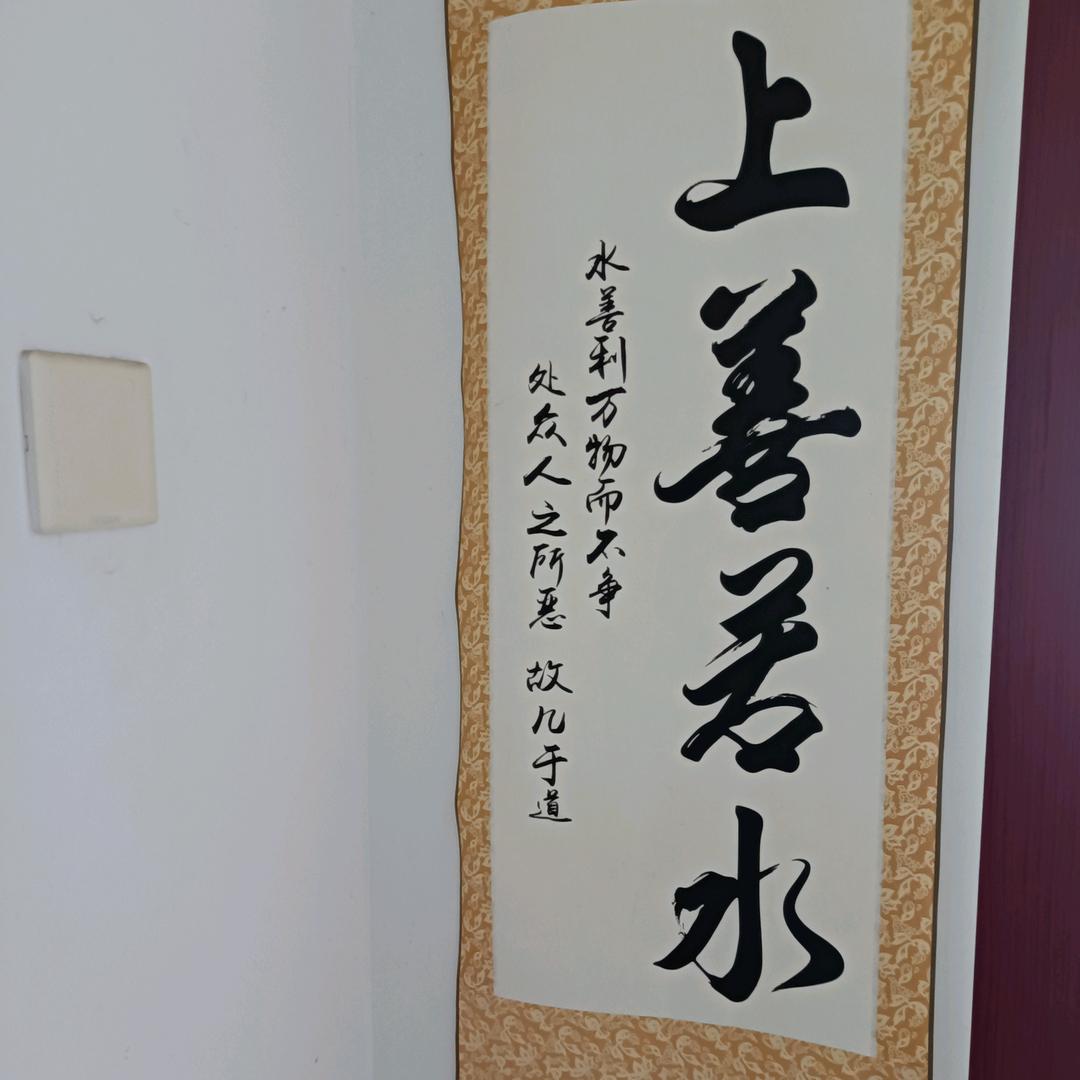 上善若水
水善利万物而不争
处众人之所恶 故几于道